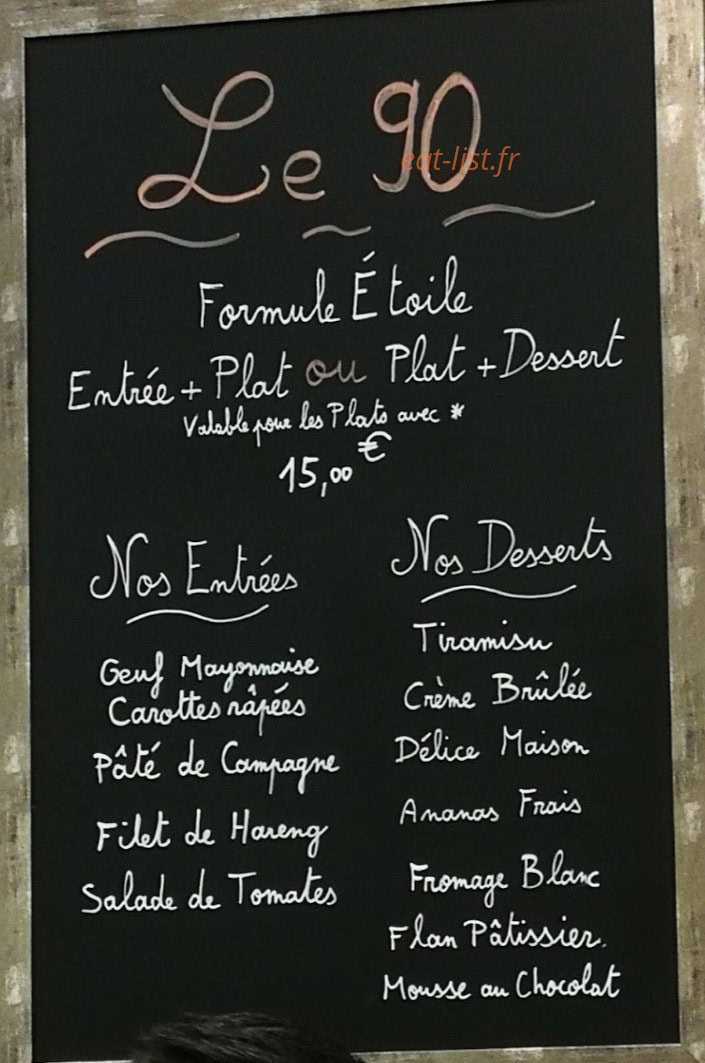 Le 90
eat-list.fr
Formule Étoile
Entrée + Plat ou Plat + Dessert
Valable pour les Plats avec *
15,00 €
Nos Entrées
Oeuf Mayonnaise
Carottes râpées
Pâté de Campagne
Filet de Hareng
Salade de Tomates
Nos Desserts
Tiramisu
Crème Brûlée
Délice Maison
Ananas Frais
Fromage Blanc
Flan Pâtissier.
Mousse au Chocolat